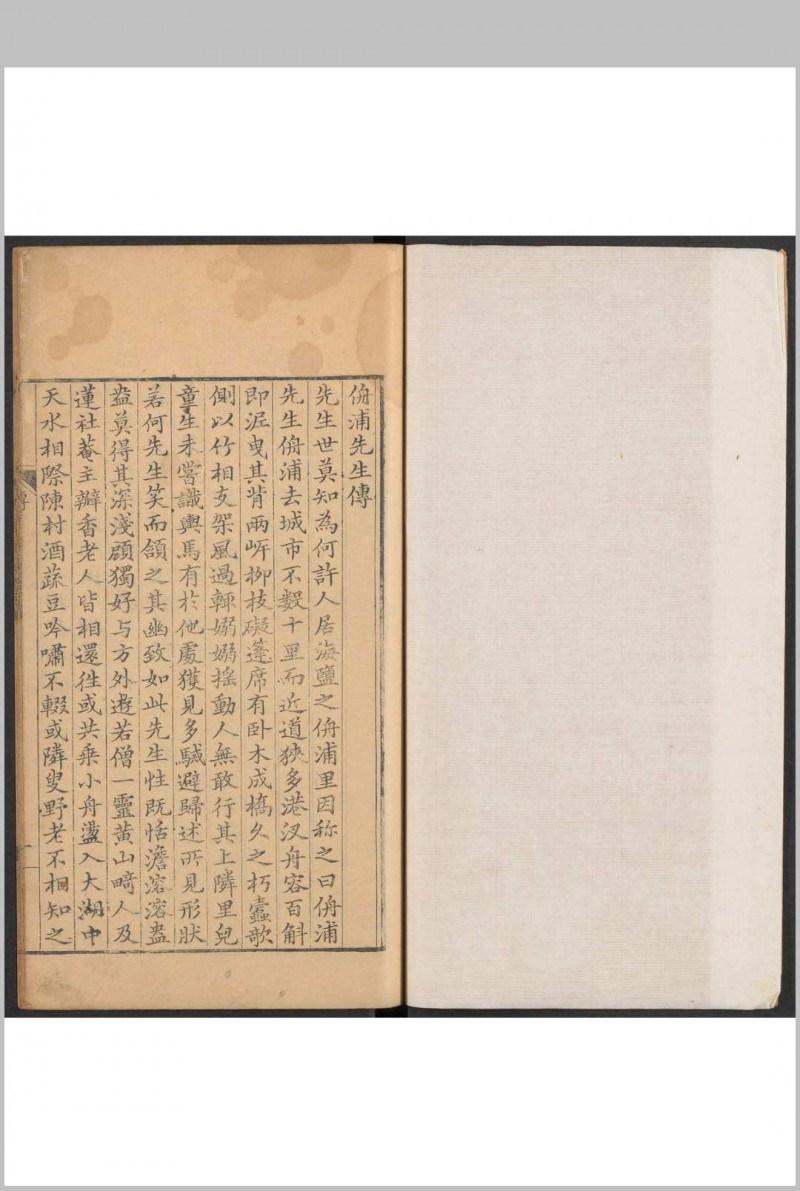 侜浦先生傳
先生世莫知為何許人居海鹽之侜浦里因称之曰侜浦
先生侜浦去城市不數十里而近道狹多港汊舟容百斛
即泥曳其背兩岍栁枝礙篷席有卧木成橋久之朽蠹欹
側以竹相支架風過輙嫋嫋揺動人無敢行其上隣里兒
童生未嘗識輿馬有於他處獲見多駴避歸述所見形狀
若何先生笑而頷之其幽致如此先生性既恬澹溶溶盎
盎莫得其深淺顧獨好与方外逰若僧一靈黄山畸人及
蓮社菴主瓣香老人皆相還徃或共乘小舟盪入大湖中
天水相際陳村酒蔬豆吟嘯不輟或隣叟野老不相知之
傳
一